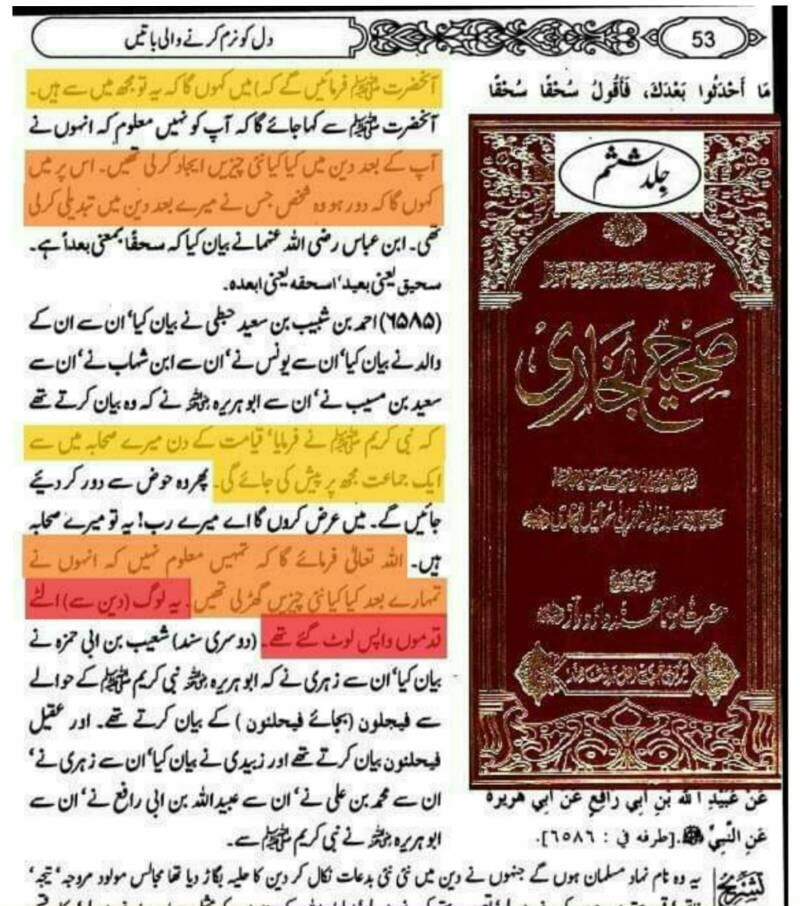 53
دل کو نرم کرنے والی باتیں
مَا أَحْدَثُوا بَعْدَكَ، فَأَقُولُ سُحْقًا سُحْقًا
آنحضرت ﷺ فرمائیں گے کہ) میں کہوں گا کہ یہ تو مجھ میں سے ہیں۔
آنحضرت ﷺ سے کہا جائے گا کہ آپ کو نہیں معلوم کہ انہوں نے
آپ کے بعد دین میں کیا کیا نئی چیزیں ایجاد کر لی تھیں۔ اس پر میں
کہوں گا کہ دور ہو وہ شخص جس نے میرے بعد دین میں تبدیلی کر لی
تھی۔ ابن عباس رضی اللہ عنہما نے بیان کیا کہ سحقًا بمعنی بعداً ہے۔
سحیق یعنی بعید، اسحقہ یعنی ابعدہ۔
(۶۵۸۵) احمد بن شبیب بن سعید حبطی نے بیان کیا، ان سے ان کے
والد نے بیان کیا، ان سے یونس نے، ان سے ابن شہاب نے، ان سے
سعید بن مسیب نے، ان سے ابو ہریرہ رضی اللہ عنہ نے کہ وہ بیان کرتے تھے
کہ نبی کریم ﷺ نے فرمایا، قیامت کے دن میرے صحابہ میں سے
ایک جماعت مجھ پر پیش کی جائے گی۔ پھر وہ حوض سے دور کر دیئے
جائیں گے۔ میں عرض کروں گا اے میرے رب! یہ تو میرے صحابہ
ہیں۔ اللہ تعالیٰ فرمائے گا کہ تمہیں معلوم نہیں کہ انہوں نے
تمہارے بعد کیا کیا نئی چیزیں گھڑ لی تھیں۔ یہ لوگ (دین سے) الٹے
قدموں واپس لوٹ گئے تھے۔ (دوسری سند) شعیب بن ابی حمزہ نے
بیان کیا، ان سے زہری نے کہ ابو ہریرہ رضی اللہ عنہ نبی کریم ﷺ کے حوالے
سے فیجلون (بجائے فیحلئون) کے بیان کرتے تھے۔ اور عقیل
فیحلئون بیان کرتے تھے اور زبیدی نے بیان کیا، ان سے زہری نے،
ان سے محمد بن علی نے، ان سے عبیداللہ بن ابی رافع نے، ان سے
ابو ہریرہ رضی اللہ عنہ نے نبی کریم ﷺ سے۔
جلد ششم
صحیح بخاری
عَنْ عُبَيْدِ اللهِ بْنِ أَبِي رَافِعٍ عَنْ أَبِي هُرَيْرَةَ
عَنِ النَّبِيِّ ﷺ. [طرفه في : ٦٥٨٦].
تشریح یہ وہ نام نہاد مسلمان ہوں گے جنہوں نے دین میں نئی نئی بدعات نکال کر دین کا حلیہ بگاڑ دیا تھا مجالس مولود مروجہ، تیجہ،